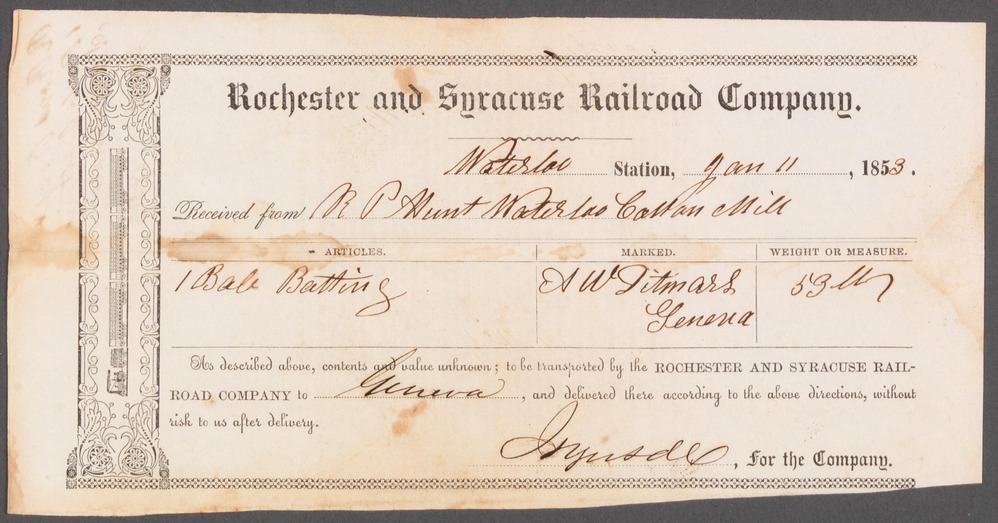 Rochester and Syracuse Railroad Company.
Waterloo Station, Jan 11, 1853.
Received from R P Hunt Waterloo Cotton Mill
ARTICLES. MARKED. WEIGHT OR MEASURE.
1 Bale Batting A W Ditmars 53 lb
Geneva
As described above, contents and value unknown; to be transported by the ROCHESTER AND SYRACUSE RAIL-
ROAD COMPANY to Geneva, and delivered there according to the above directions, without
risk to us after delivery.
, For the Company.